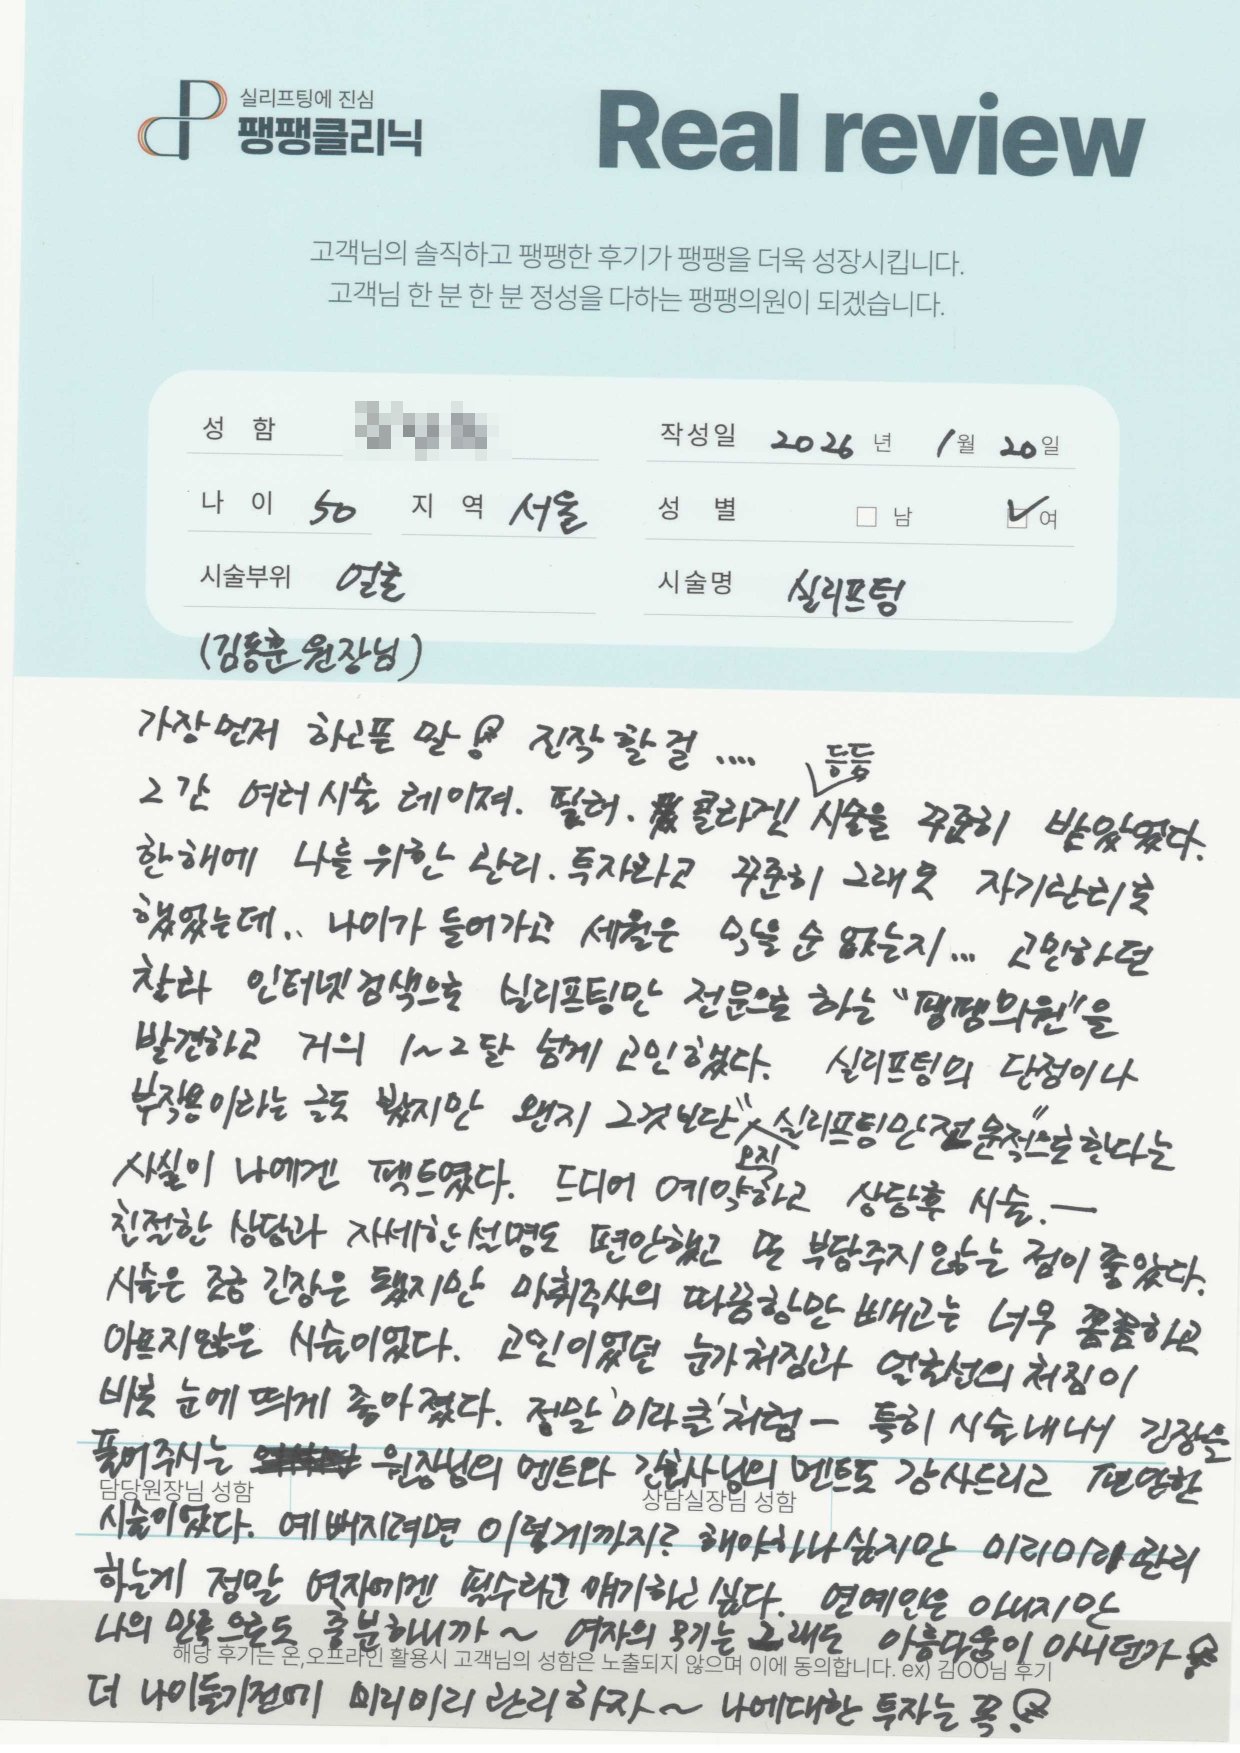 실리프팅에 진심
팽팽클리닉
Real review
고객님의 솔직하고 팽팽한 후기가 팽팽을 더욱 성장시킵니다.
고객님 한 분 한 분 정성을 다하는 팽팽의원이 되겠습니다.
성 함
작성일 2026 년 1월 20일
나 이 50 지 역 서울
성 별 남 여
시술부위 얼굴
시술명 실리프팅
(김동훈 원장님)
가장 먼저 하고픈 말! 진작 할 걸 ....
그간 여러시술 레이져. 필러. 콜라겐! 등등 시술을 꾸준히 받았었다.
한해에 나를 위한 관리. 투자라고 꾸준히 그래도 자기관리로
했었는데.. 나이가 들어가고 세월은 막을 순 없는지... 고민하던
찰라 인터넷검색으로 실리프팅만 전문으로 하는 "팽팽의원"을
발견하고 거의 1~2달 넘게 고민했다. 실리프팅의 단점이나
부작용이라는 글도 봤지만 왠지 그것보단 "오직 실리프팅만 전문적"으로 한다는
사실이 나에겐 팩트였다. 드디어 예약하고 상담후 시술.ㅡ
친절한 상담과 자세한 설명도 편안했고 또 부담주지 않는 점이 좋았다.
시술은 조금 긴장은 됐지만 마취주사의 따끔함만 빼고는 너무 꼼꼼하고
아프지않은 시술이었다. 고민이었던 눈가처짐과 얼굴선의 처짐이
바로 눈에 띄게 좋아졌다. 정말 '미라클'처럼ㅡ 특히 시술내내 긴장을
풀어주시는 원장님의 멘트와 간호사님의 멘트도 감사드리고 편안한
담당원장님 성함 상담실장님 성함
시술이었다. 예뻐지려면 이렇게까지? 해야하나싶지만 미리미리 관리
하는게 정말 여자에겐 필수라고 얘기하고 싶다. 연예인은 아니지만
나의 만족으로도 충분하니까 ~ 여자의 무기는 그래도 아름다움이 아니던가!
해당 후기는 온,오프라인 활용시 고객님의 성함은 노출되지 않으며 이에 동의합니다. ex) 김OO님 후기
더 나이들기전에 미리미리 관리하자~ 나에대한 투자는 꼭!